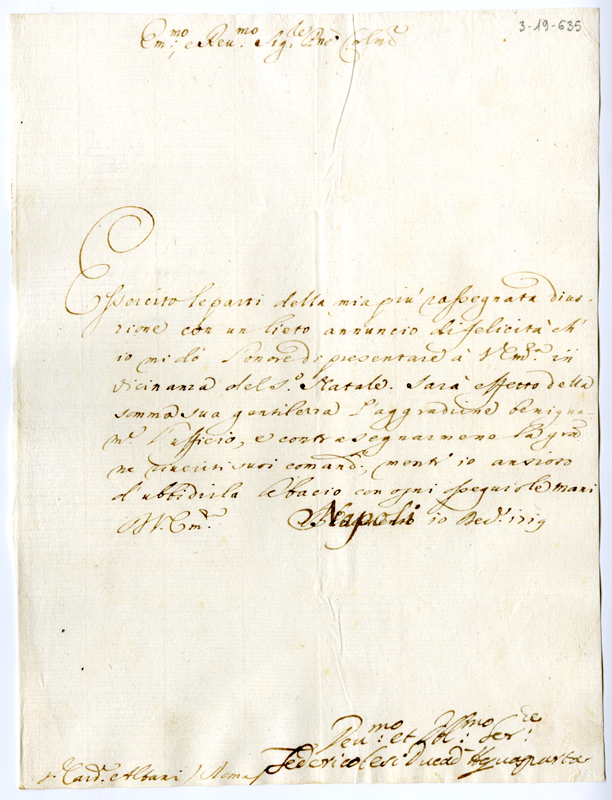 3-19-635
Em.mo, e Reu.mo Sig.re Pne Colmo
Essercito le parti della mia più rassegnata diuo-
zione con un lieto annuncio di felicità ch'
io mi dò l'onore di presentare à V. Em.a in
vicinanza del S.o Natale. Sarà effetto della
somma sua gentilezza l'aggradirne benigna-
m.te l'ufficio, e contrasegnarmene la grad
ne riueriti suoi comandi, mentr' io ansioso
d'ubbidirla le bacio con ogni ossequio le mani
D V. Em.a Napoli 10 Dec.
Deu.mo et Obl.mo Ser.re
Federico Cesi Duca d'Aquasparta
Card. Albani / Roma